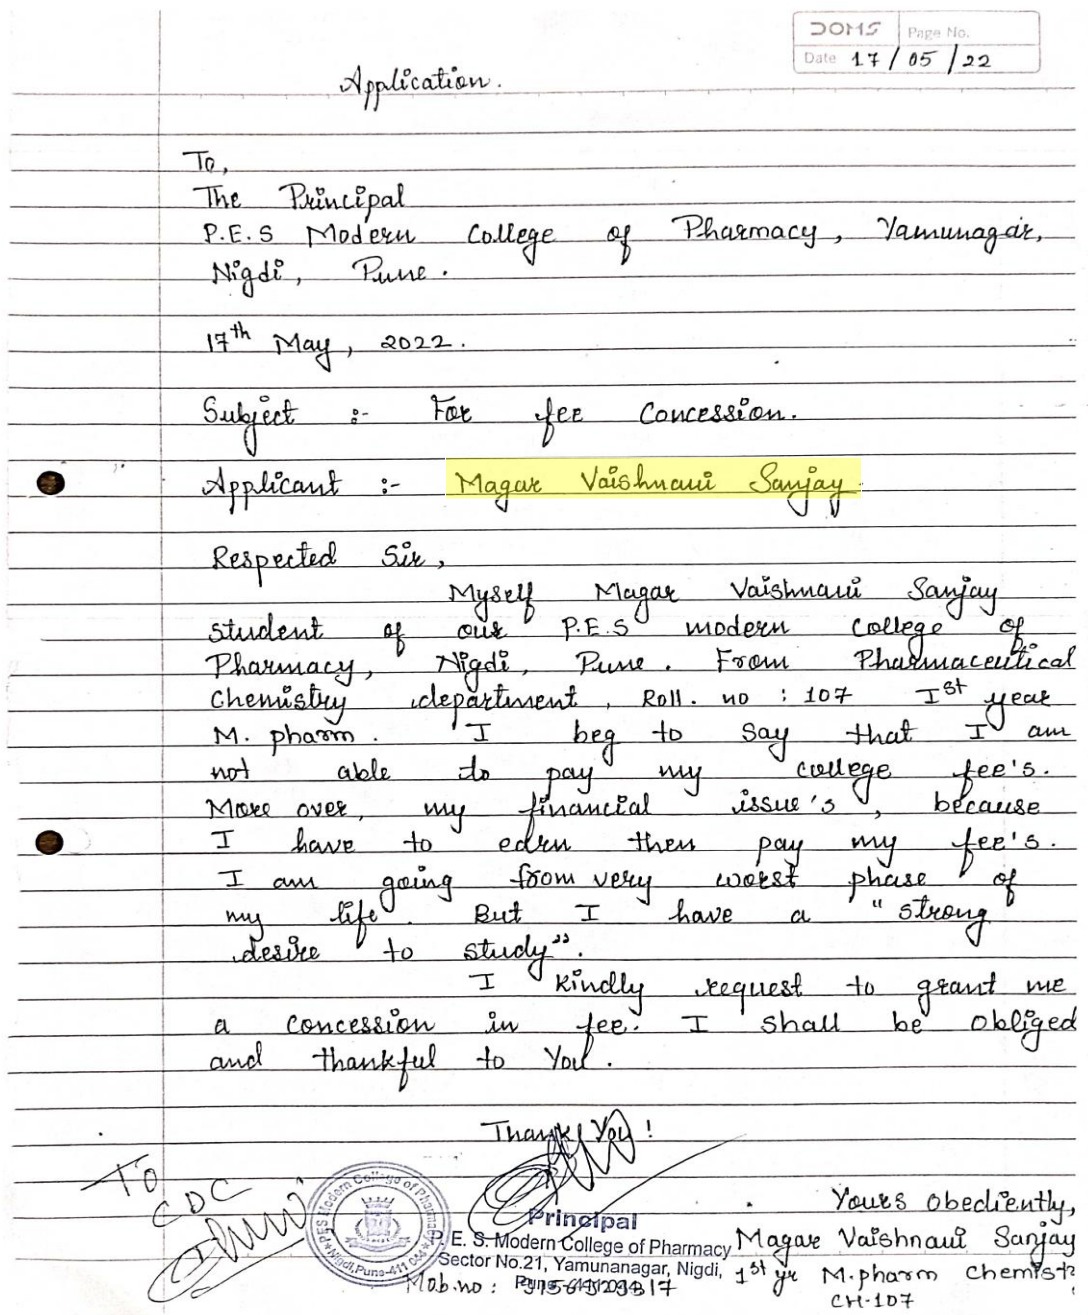 DOMS Page No.
Date 17/05/22
Application.
To,
The Principal
P.E.S Modern College of Pharmacy, Yamunagar,
Nigdi, Pune.
17th May, 2022.
Subject :- For fee Concession.
Applicant :- Magar Vaishnavi Sanjay
Respected Sir,
Myself Magar Vaishnavi Sanjay
student of our P.E.S modern college of
Pharmacy, Nigdi, Pune. From Pharmaceutical
Chemistry department, Roll. no : 107 Ist year
M. pharm. I beg to say that I am
not able to pay my college fee's.
More over, my financial issue's, because
I have to earn then pay my fee's.
I am going from very worst phase of
my life. But I have a "strong
desire to study".
I kindly request to grant me
a concession in fee. I shall be obliged
and thankful to You.
Thank You!
To
CDC
PES Modern College of Pharmacy
Nigdi, Pune-411 044
Principal
P. E. S. Modern College of Pharmacy
Sector No.21, Yamunanagar, Nigdi,
Mob.no :
Yours Obediently,
Magar Vaishnavi Sanjay
1st yr M.pharm Chemist
CH-107